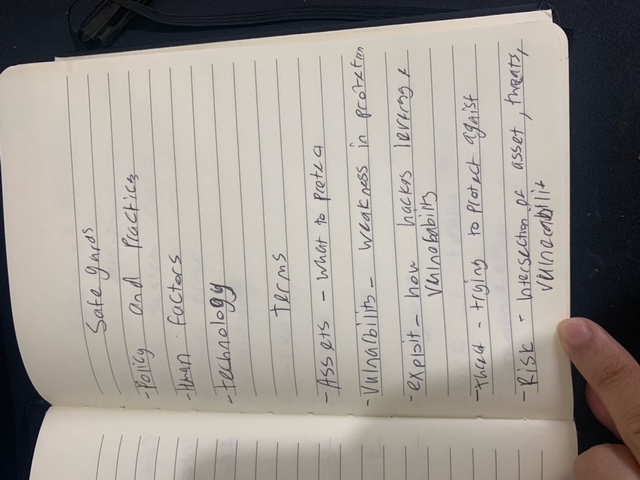 Safe guards
-Policy and Practics
-Human factors
-technology
terms
-Assets - what to protect
-Vulnarbility - weakness in protetion
-exploit - how hackes leverage
vulnobability
-threat - trying to protect agaist
-Risk - Intersection of asset, threats,
vulnerabilit